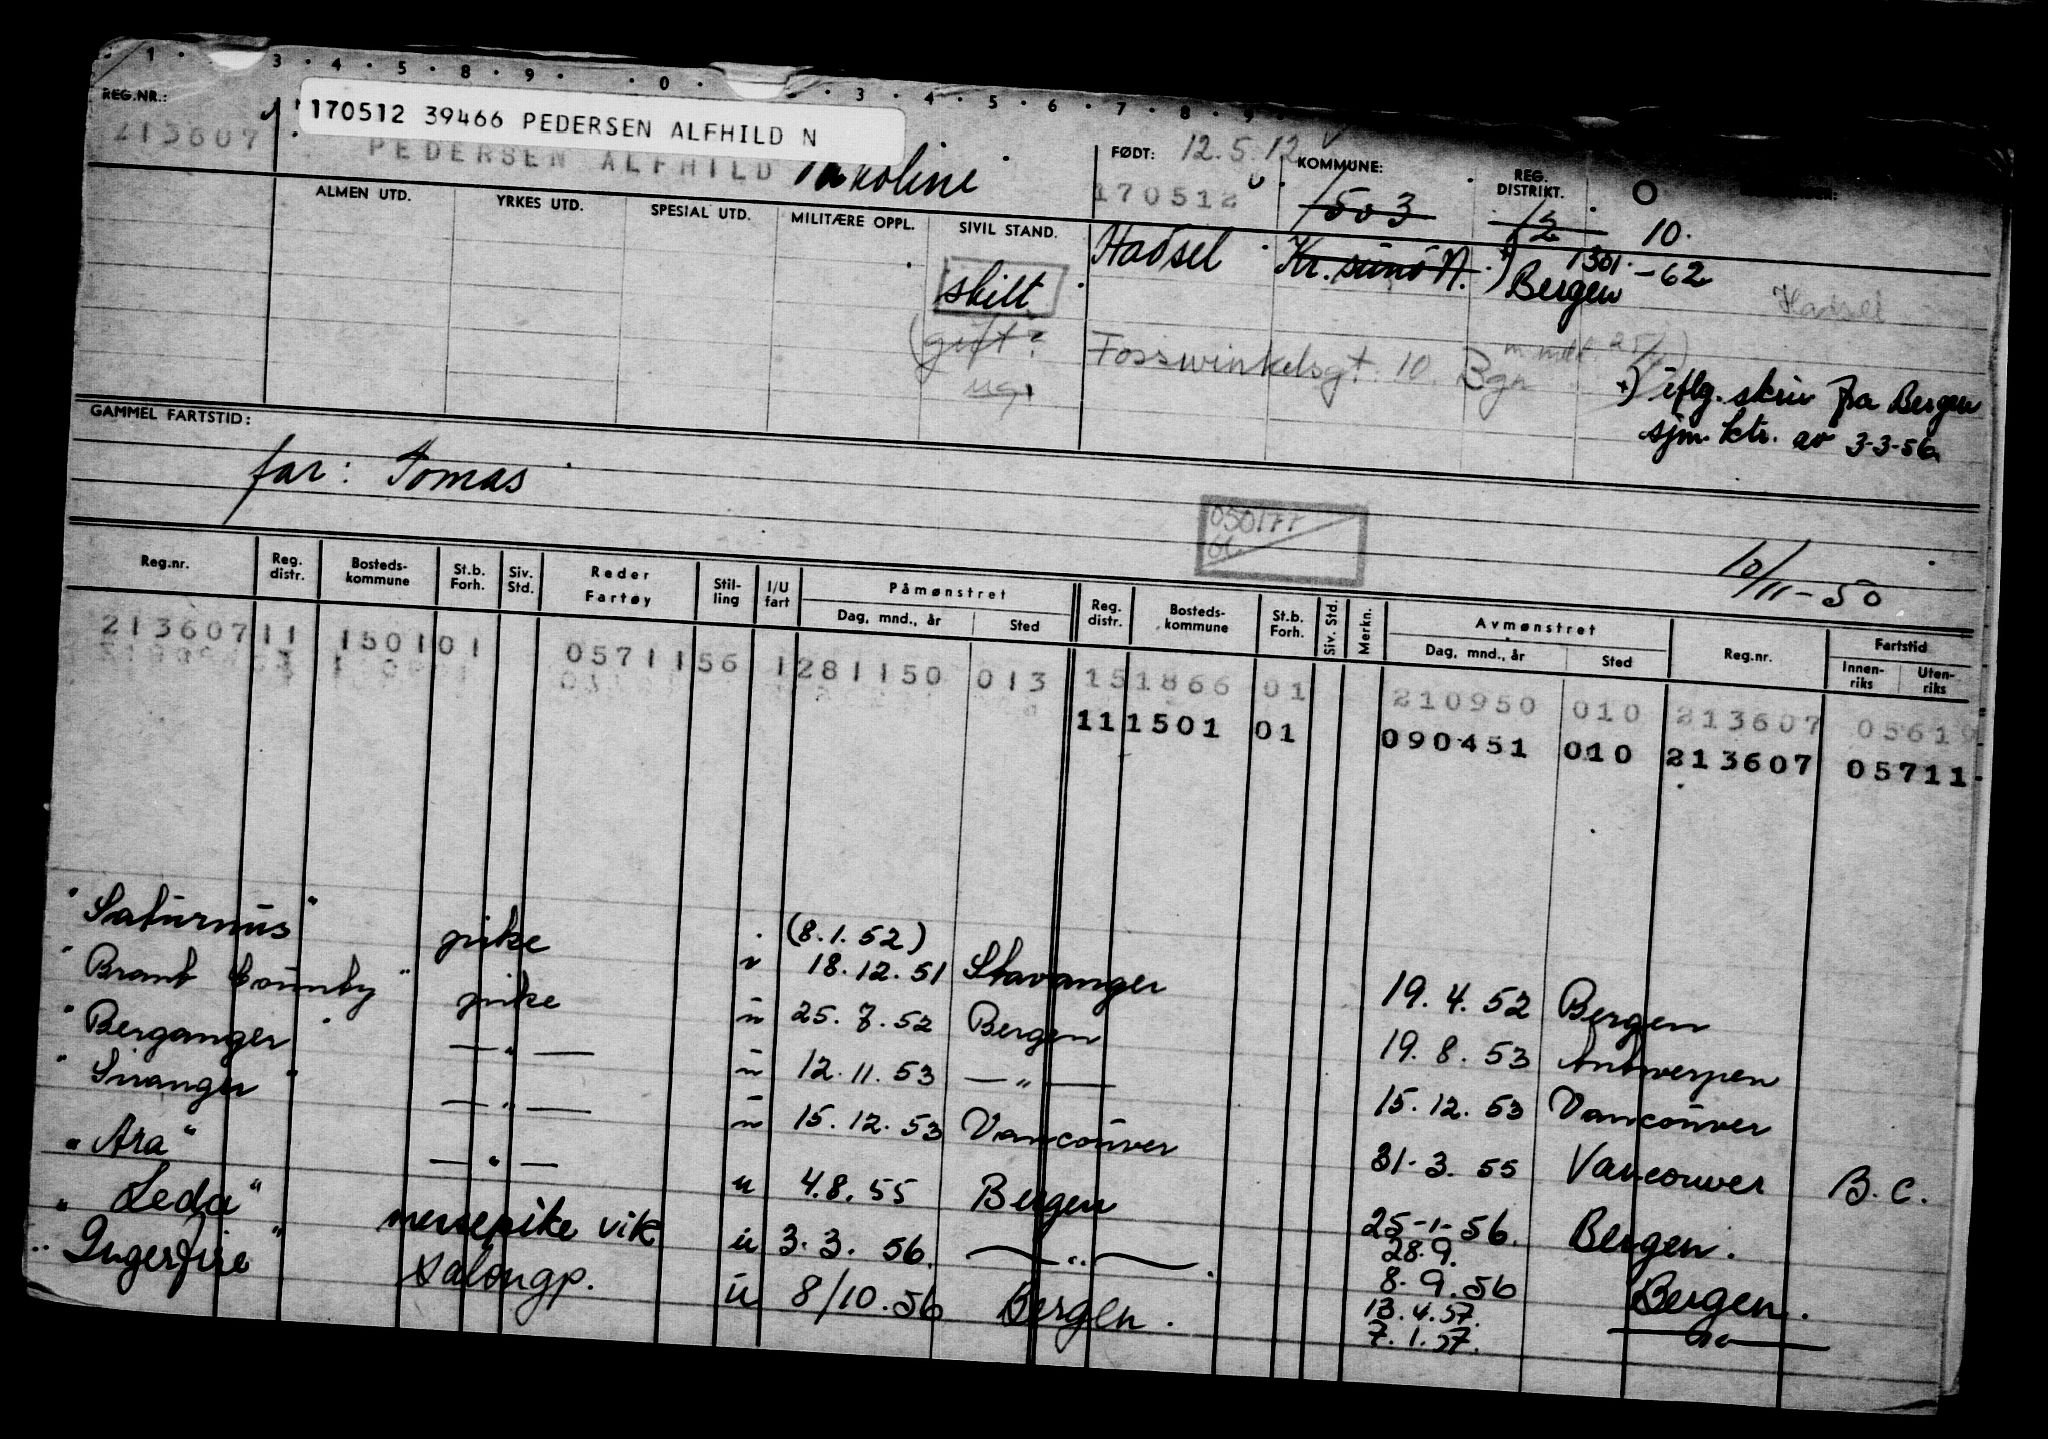 1 · · 3 · 4 · 5 · 8 · 9 · · 0 · · 3 · 4 · 5 · 6 · 7 · 8 · 9
REG.NR.:
170512 39466 PEDERSEN ALFHILD N
213607 PEDERSEN ALFHILD
FØDT: 12.5.12 KOMMUNE: REG. DISTRIKT.
170512 1503 12 10.
ALMEN UTD. YRKES UTD. SPESIAL UTD. MILITÆRE OPPL. SIVIL STAND.
Hadsel Kr.sund N. +) 1301 -62
Bergen Hadsel
skilt
(gift?
ug.
Fosswinkelsgt. 10 Bgn
+) iflg. skriv fra Bergen
sjm. ktr. av 3-3-56
GAMMEL FARTSTID:
far: Tomas
050177
10/11-50
Reg.nr. Reg. distr. Bosteds-kommune St.b. Forh. Siv. Std. Reder Fartøy Stil-ling I/U fart Påmønstret Dag, mnd., år Sted Reg. distr. Bosteds-kommune St.b. Forh. Siv. Std. Merkn. Avmønstret Dag, mnd., år Sted Reg.nr. Fartstid Innen-riks Uten-riks
213607 11 1501 01 05711 56 1 281150 013 15 1866 01 210950 010 213607 05619
11 1501 01 090451 010 213607 05711
"Saturnus" pike (8.1.52)
"Brant County" pike u 18.12.51 Stavanger 19.4.52 Bergen
"Berganger" — " — u 25.7.52 Bergen 19.8.53 Antwerpen
u 12.11.53 — " — 15.12.53 Vancouver
"Siranger" — " — u 15.12.53 Vancouver 31.3.55 Vancouver B.C.
"Ara" — " — u 4.8.55 Bergen 25-1-56. Bergen.
"Leda" messepike vik u 3.3.56. — " — 28.9.
8.9.56 Bergen.
"Ingerfire" salongp. u 8/10.56 Bergen. 13.4.57.
7.1.57.